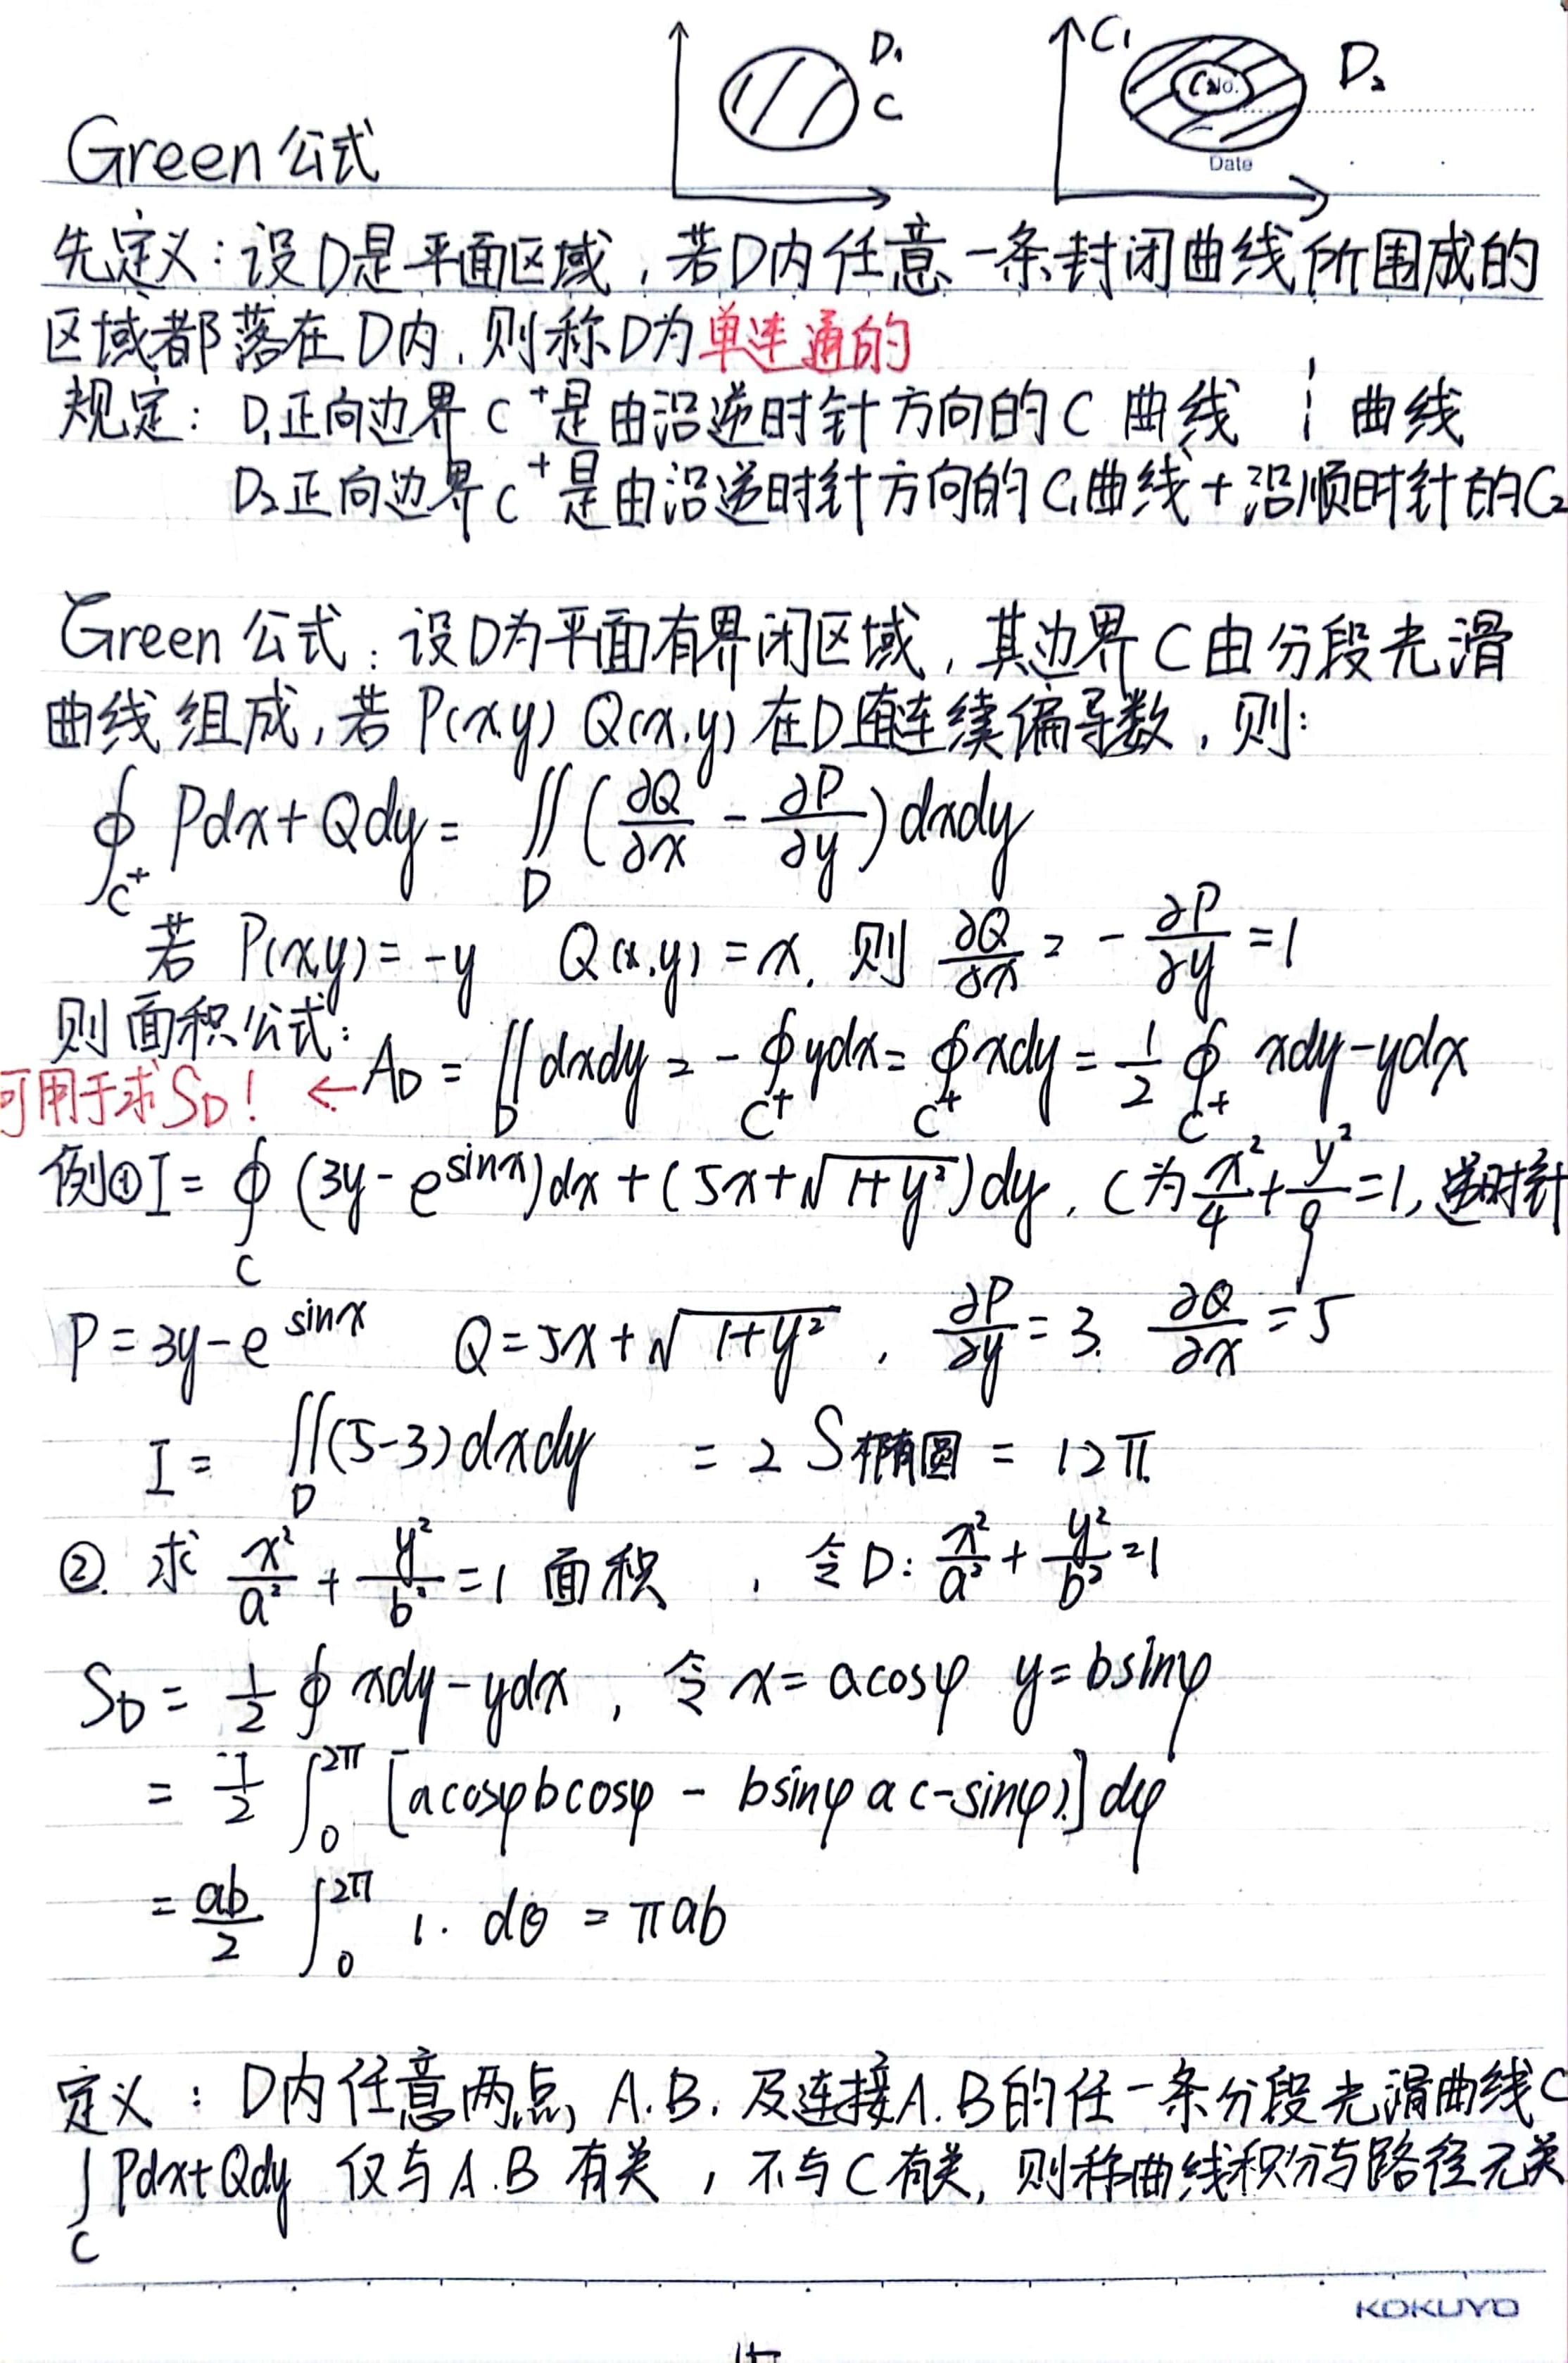 D₁
C
C₁
C₂
No.
D₂
Date
Green 公式
先定义：设D是平面区域，若D内任意一条封闭曲线所围成的
区域都落在D内，则称D为单连通的
规定： D₁正向边界 C⁺是由沿逆时针方向的C 曲线 曲线
D₂正向边界C⁺是由沿逆时针方向的C₁曲线+沿顺时针的C₂
Green 公式：设D为平面有界闭区域，其边界C由分段光滑
曲线组成，若 P(x,y) Q(x,y) 在D连续偏导数，则：
∮_C⁺ Pdx+Qdy = ∬_D (∂Q/∂x - ∂P/∂y) dxdy
若 P(x,y)=-y Q(x,y)=x, 则 ∂Q/∂x = -∂P/∂y =1
则面积公式：
可用于求S_D! ← A_D = ∬_D dxdy = -∮_C⁺ ydx = ∮_C⁺ xdy = 1/2 ∮_C⁺ xdy-ydx
例① I = ∮_C (3y-e^sinx)dx+(5x+√(1+y²))dy, C为 x²/4+y²/9=1, 逆时针
P=3y-e^sinx Q=5x+√(1+y²), ∂P/∂y=3. ∂Q/∂x=5
I= ∬_D (5-3)dxdy = 2 S椭圆 = 12π
② 求 x²/a² + y²/b² =1 面积 , 令D: x²/a² + y²/b² =1
S_D = 1/2 ∮ xdy-ydx, 令 x=acosφ y=bsinφ
= 1/2 ∫₀^2π [acosφbcosφ - bsinφa(-sinφ)]dφ
= ab/2 ∫₀^2π 1· dθ = πab
定义：D内任意两点A.B.及连接A.B的任一条分段光滑曲线C
∫_C Pdx+Qdy 仅与A.B有关，不与C有关，则称曲线积分与路径无关
KOKUYO